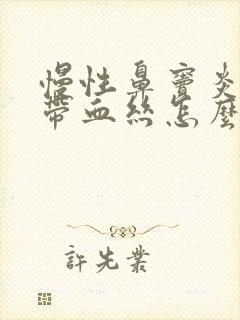 慢性鼻竇炎
帶血絲怎麼
許先業